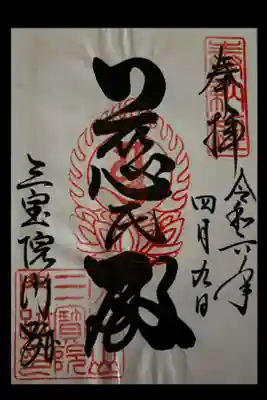 奉拝
令和六年
四月九日
慈氏殿
三宝院門跡
三寶院